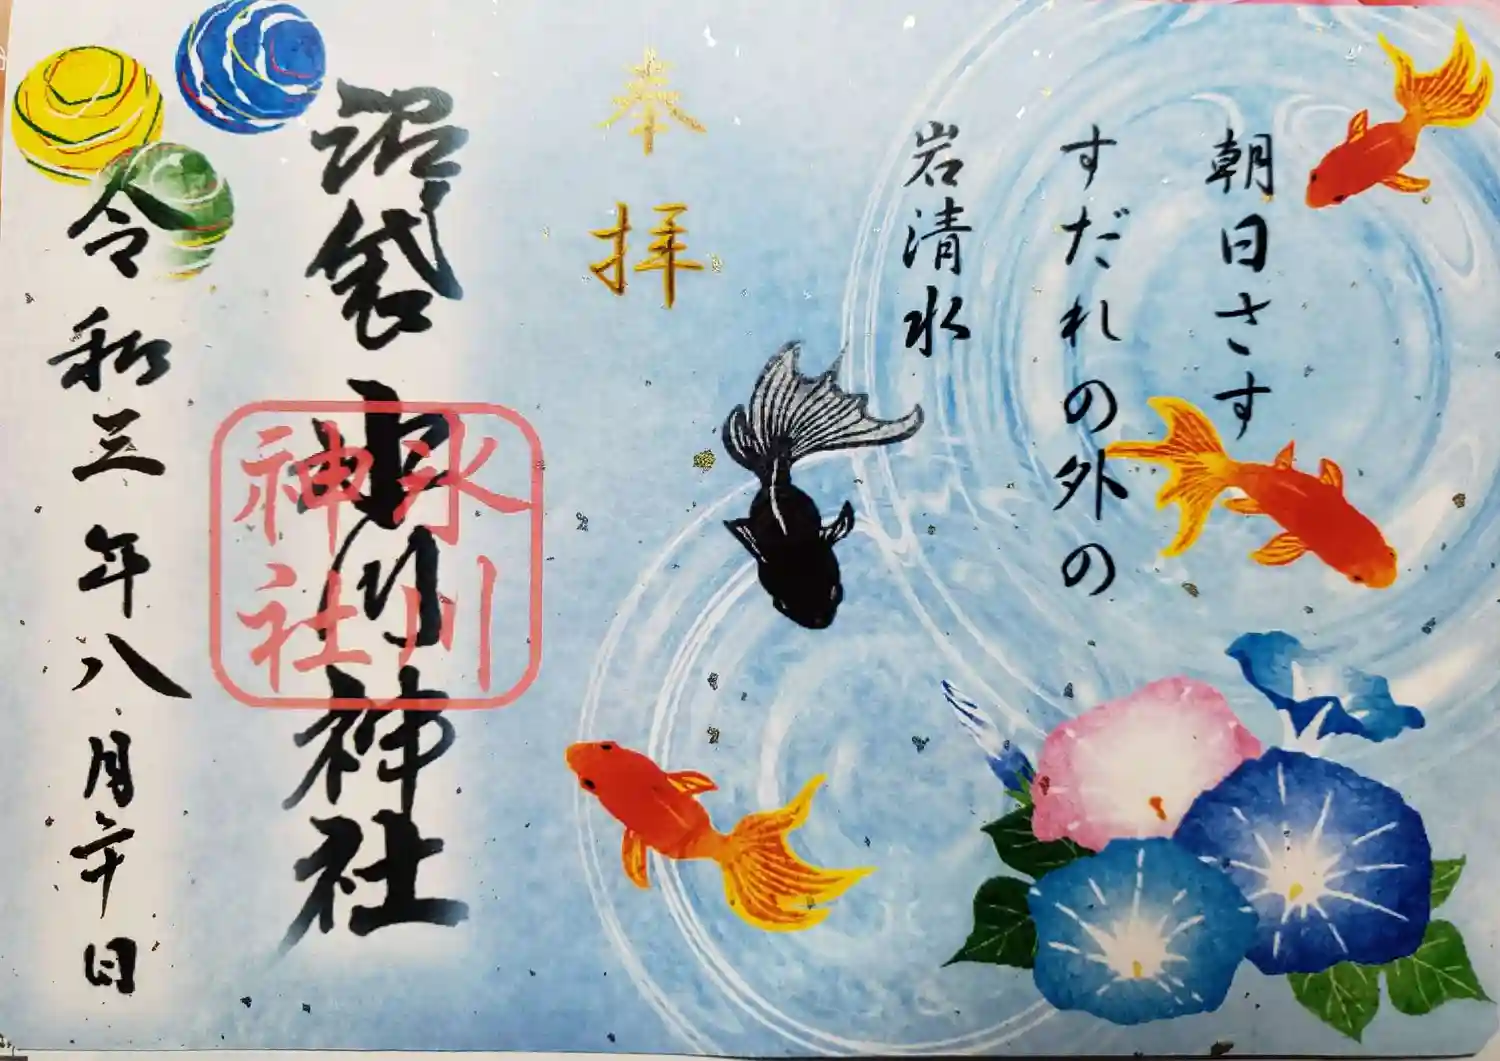 朝日さす
すだれの外の
岩清水
奉拝
沼袋氷川神社
氷川
神社
令和三年八月日